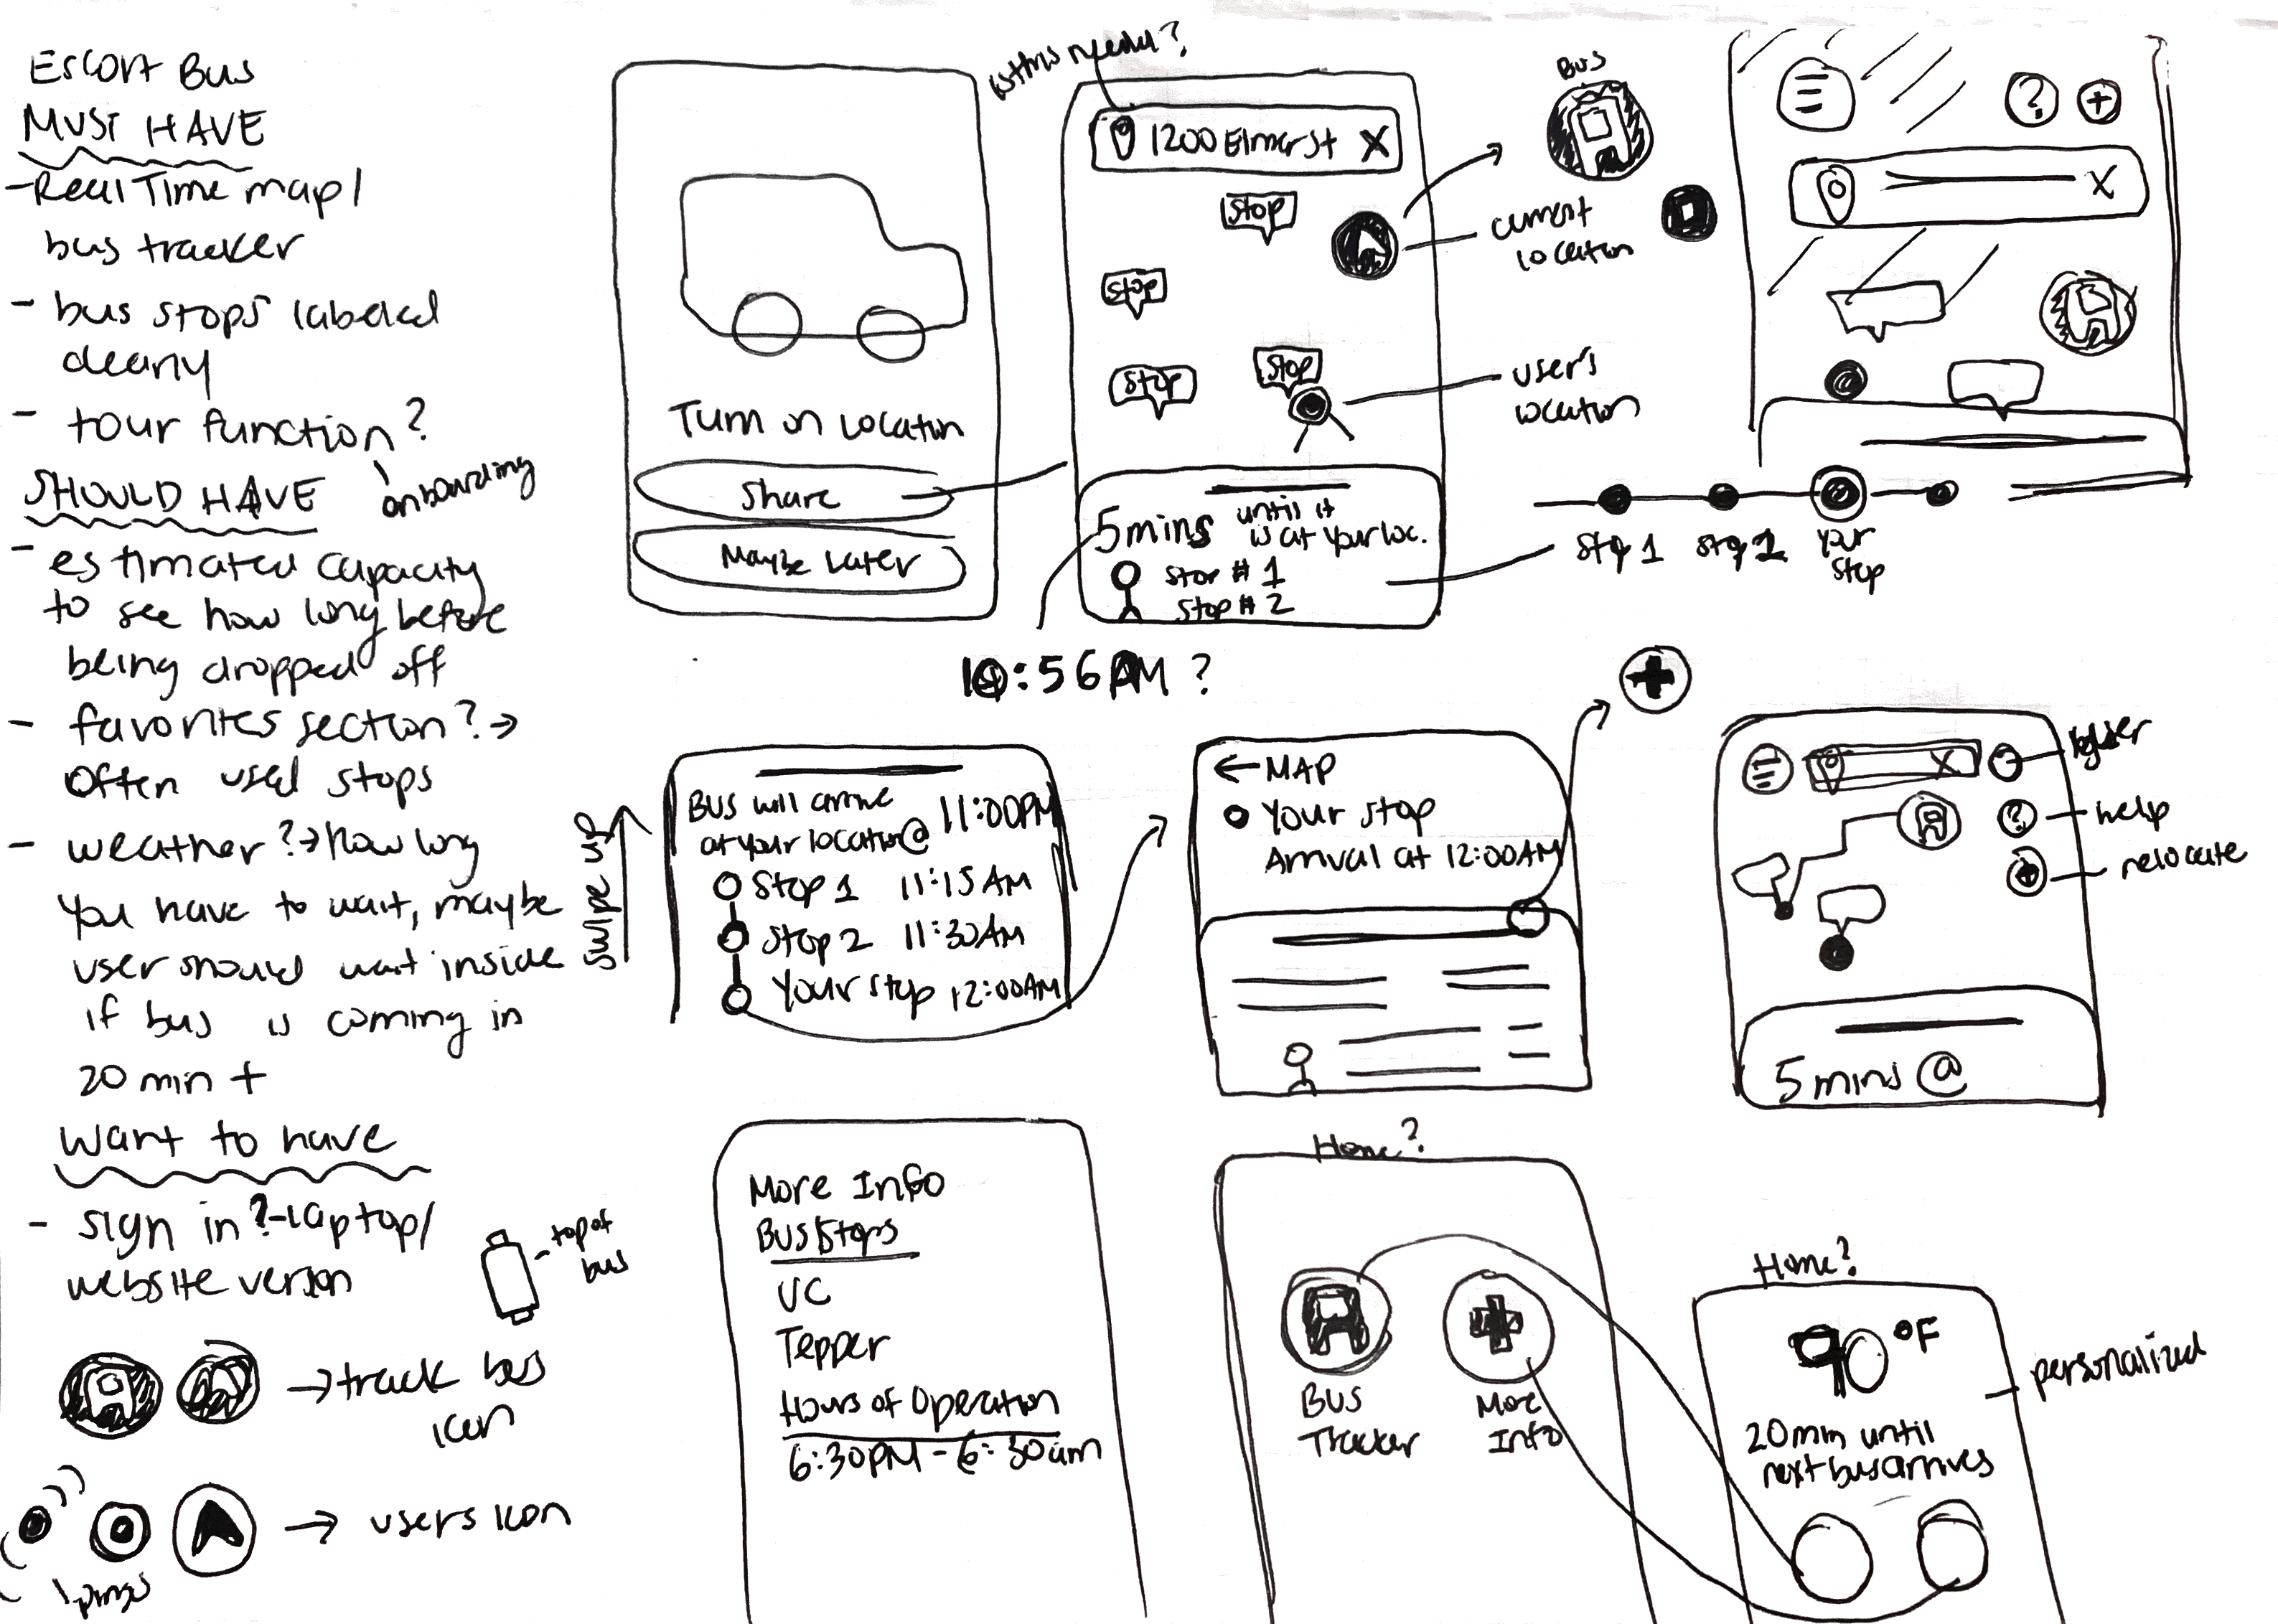 Escort Bus
MUST HAVE
- Real Time map/
bus tracker
- bus stops labeled
clearly
- tour function?
onboarding
SHOULD HAVE
- estimated capacity
to see how long before
being dropped off
- favorites section? →
Often used stops
- weather? → how long
You have to wait, maybe
user should wait inside
if bus is coming in
20 min +
Want to have
- sign in? - laptop/
website version
- top of
bus
→ track bus
icon
→ users icon
Turn on Location
Share
Maybe Later
is this needed?
1200 Elmer St X
Stop
Stop
Stop
Stop
5 mins until it
is at your loc.
Stop # 1
Stop # 2
:56 AM ?
Bus
current
location
user's
location
? +
X
Stop 1
Your
Stop
swipe up
Bus will arrive
at your location @ 11:00PM
Stop 1 11:15 AM
Stop 2 11:30 AM
Your stop 12:00AM
← MAP
Your stop
Arrival at 12:00AM
+
X
? help
relocate
5 mins @
More Info
Bus Stops
UC
Tepper
Hours of Operation
6:30PM - 6:30am
Home?
Bus
Tracker
More
Info
Home?
90 °F
20 min until
next bus arrives
personalized